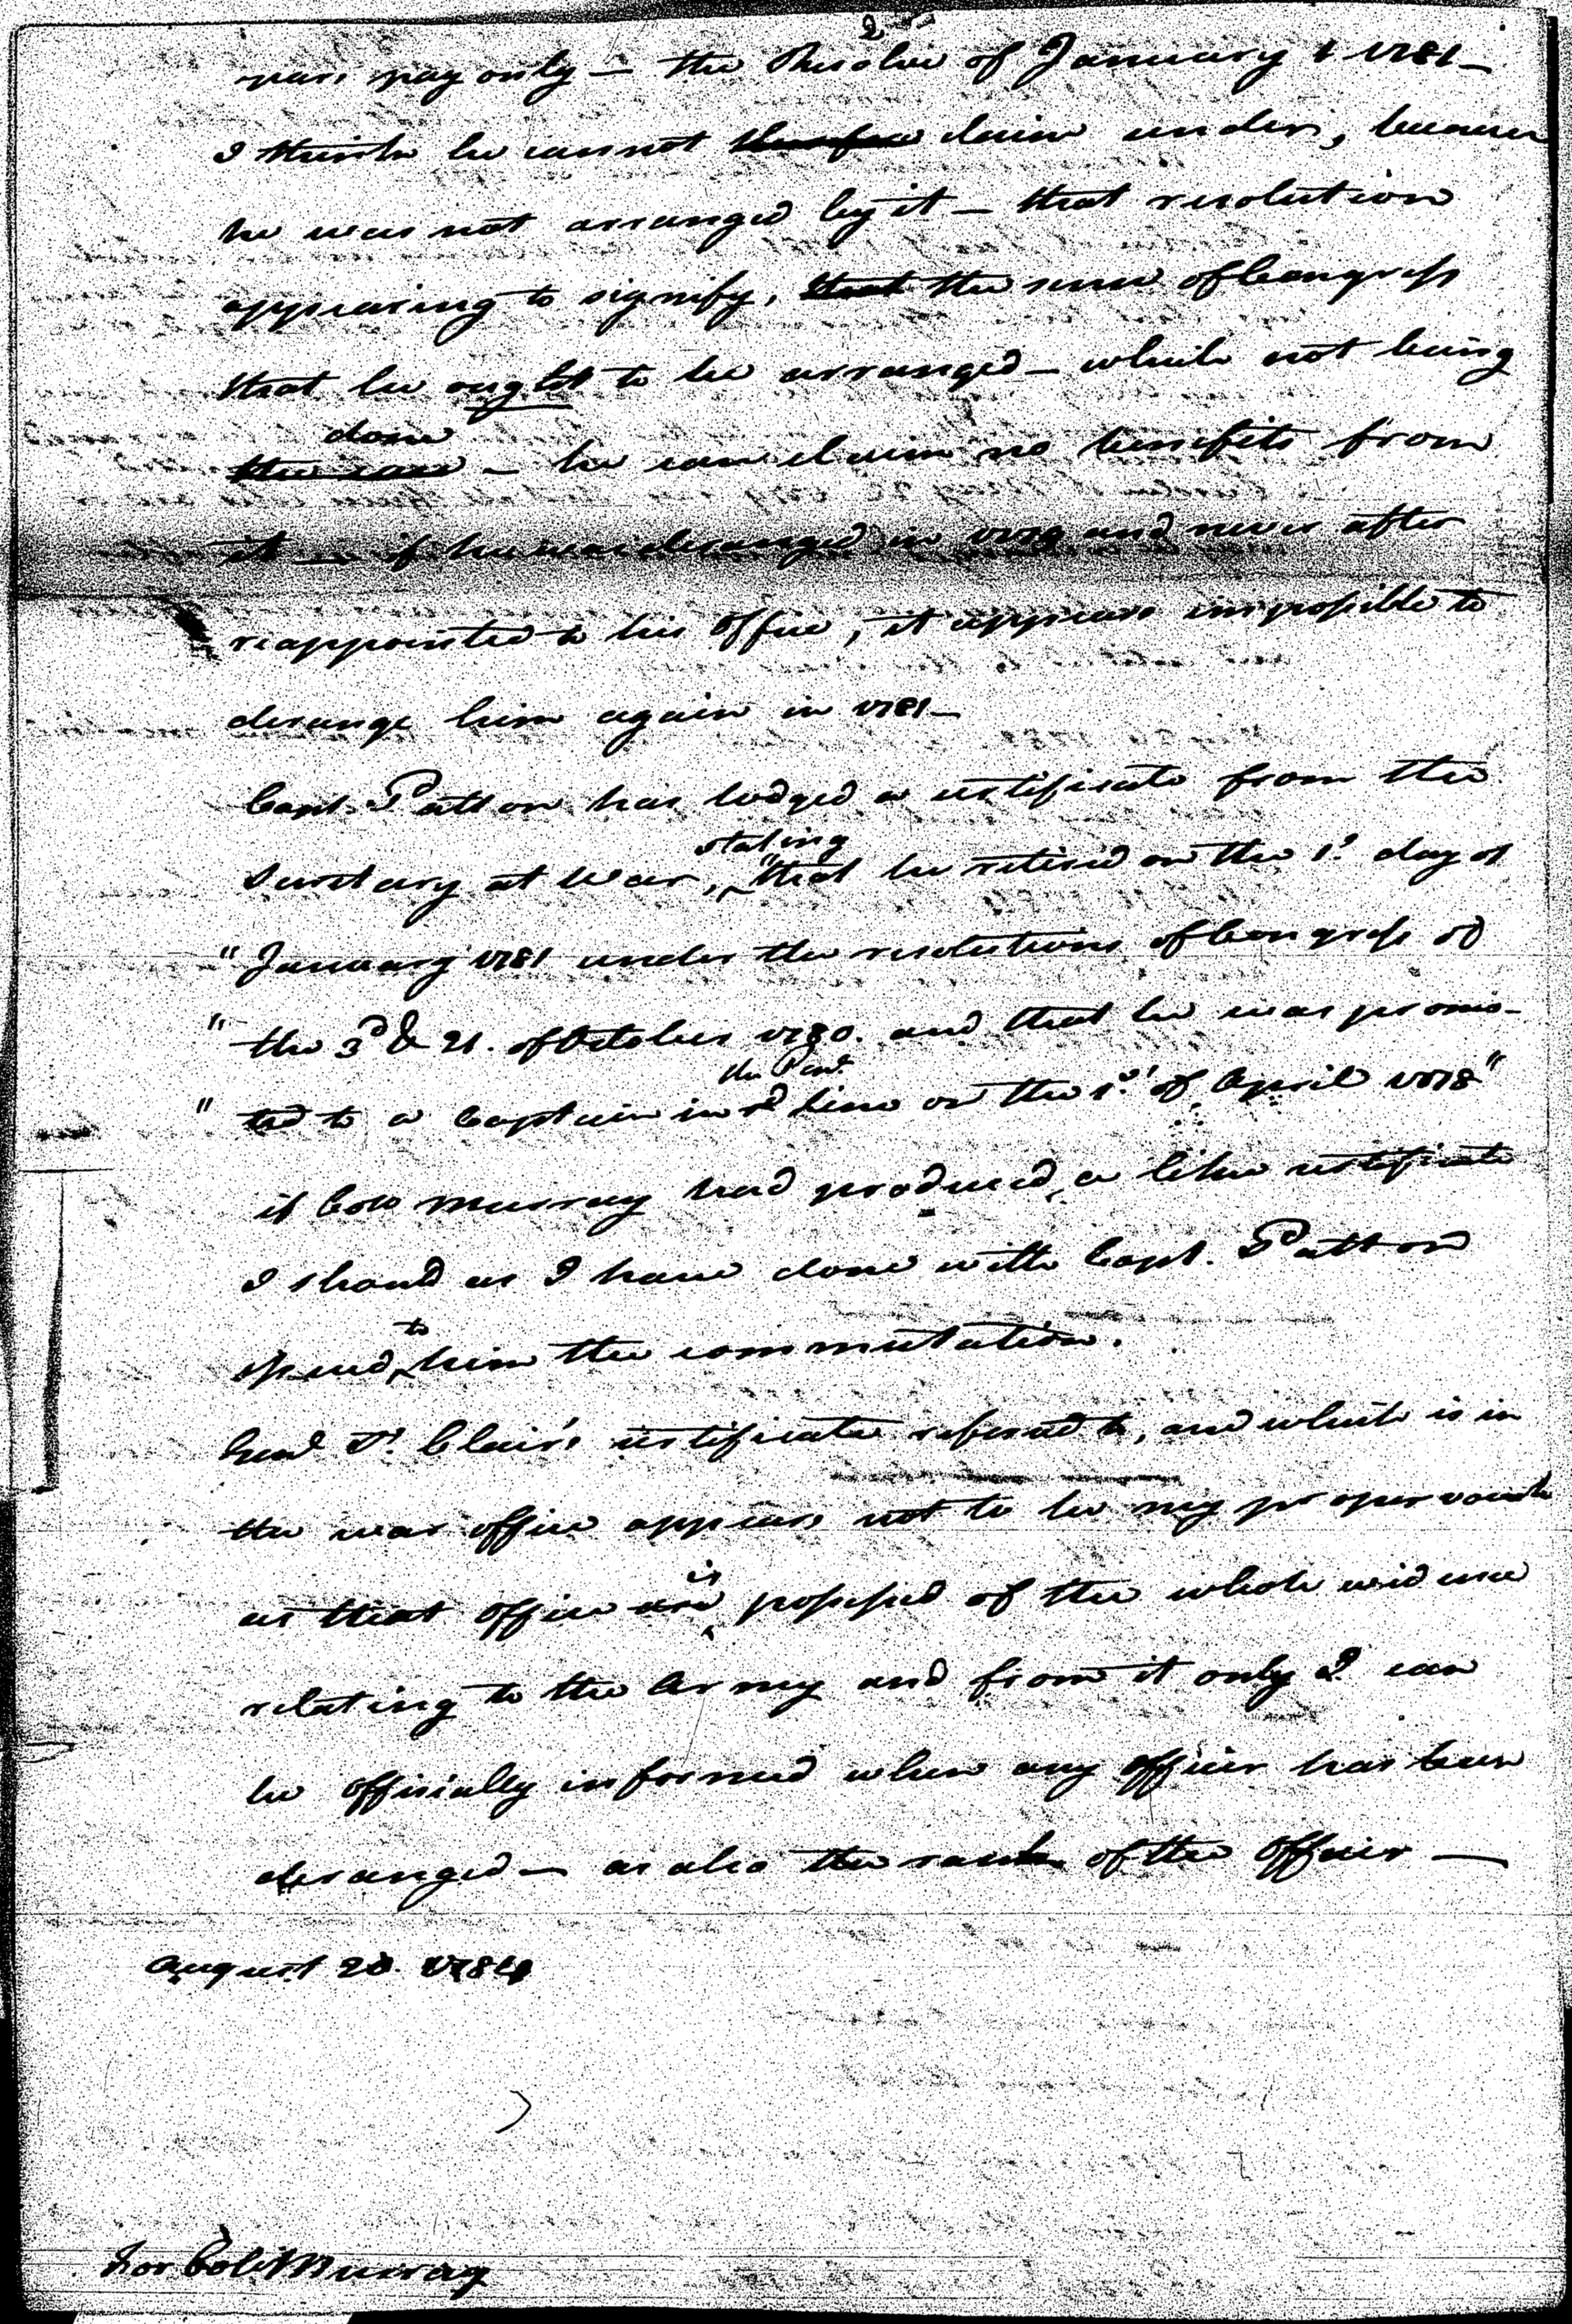 2
years pay only — the Resolve of January 1 1781 —
I think he cannot therefore claim under, because
he was not arranged by it — that resolution
appearing to signify, that the sense of Congress
that he ought to be arranged — which not being
done
the case — he can claim no benefits from
it — if he was deranged in 1779 and never after
reappointed to his office, it appears impossible to
derange him again in 1781 —
Capt. Patton has lodged a certificate from the
stating
Secretary at War, "that he retired on the 1st day of
" January 1781 under the resolutions of Congress of
" the 3d & 21. of October 1780. and that he was promo-
the Penn
" ted to a Captain in line on the 1st of April 1778"
if Coll Murray had produced a like certificate
I should as I have done with Capt. Patton
to
issued him the commutation.
Genl St. Clair's certificate refered to, and which is in
the war office appears not to be my proper vouch
is
as that office are possessed of the whole evidence
relating to the Army and from it only I can
be officially informed when any officer has been
deranged — as also the rank of the officer —
August 20. 1784
for Col. Murray